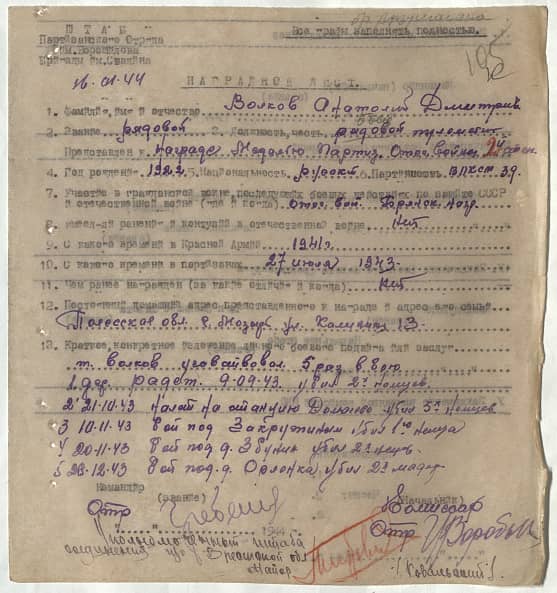 ШТАБ
Партизанского Отряда
им. Ворошилова
Бригады им. Сталина
Все графы заполнять полностью.
195
16.01.44
НАГРАДНОЙ ЛИСТ.
1. Фамилия, имя и отчество Волков Анатолий Дмитриев
2. Звание рядовой 3. Должность, часть рядовой пулеметч
Представлен к награде Медалью Партиз. Отеч. Войны 2й степ
4. Год рождения 1922. 5. Национальность русский 6. Партийность ВЛКСМ 39.
7. Участие в гражданской войне, последующих боевых действиях по защите СССР
и отечественной войне (где и когда) Отеч. Вой.
8. Имеет-ли ранения и контузии в отечественной войне Нет
9. С какого времени в Красной Армии 1941 г.
10. С какого времени в партизанах 27 июля 1943.
11. Чем ранее награжден (за какие отличия и когда) Нет
12. Постоянный домашний адрес представленного к награде и адрес его семьи
Полесская обл. г. Мозырь ул. Калинина 13.
13. Краткое, конкретное изложение личного боевого подвига или заслуг
т. Волков участвовал 5 раз в бою
1. д. 9.09.43. убил 2х немцев.
2 21.10.43 налет на станцию убил 5х немцев
3 10.11.43 бой под Закружным убил 1го немца
4 20.11.43 бой под д. Збунин убил 2х немц.
5 23.12.43 бой под д. Орлянка убил 2х мадяр
Командир
(звание)
(Начальник)
Комиссар
Отр
Отр
1944 г.
Уполномоченный штаба
соединения по Брестской обл.
Майор
(Ковальский).